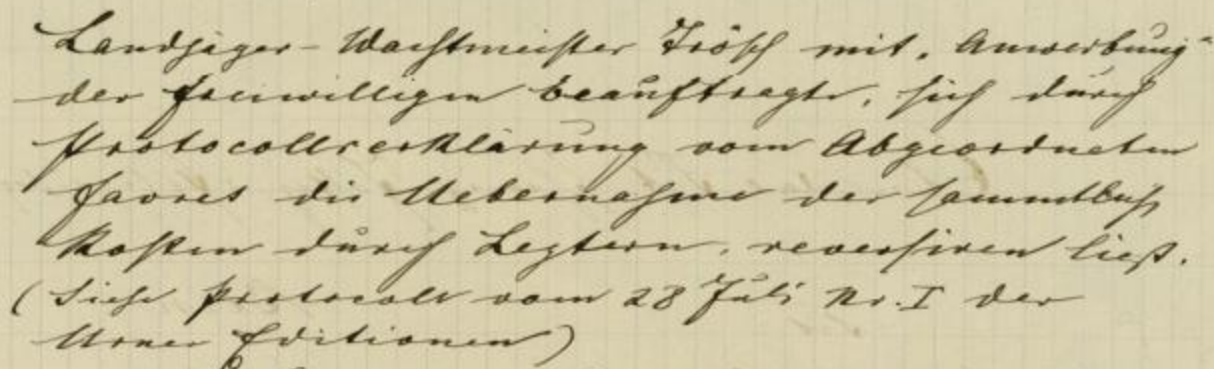 Landjäger-Wachtmeister Trösch mit. Anwerbung
der freiwilligen beauftragte, sich durch
Protocollserklärung vom Abgeordneten
Favres die Uebernahme der sammtlich
Kosten durch Leztern, reversiren ließ.
(Siehe Protocoll vom 28 Juli Nr. I der
Urner Editionen)